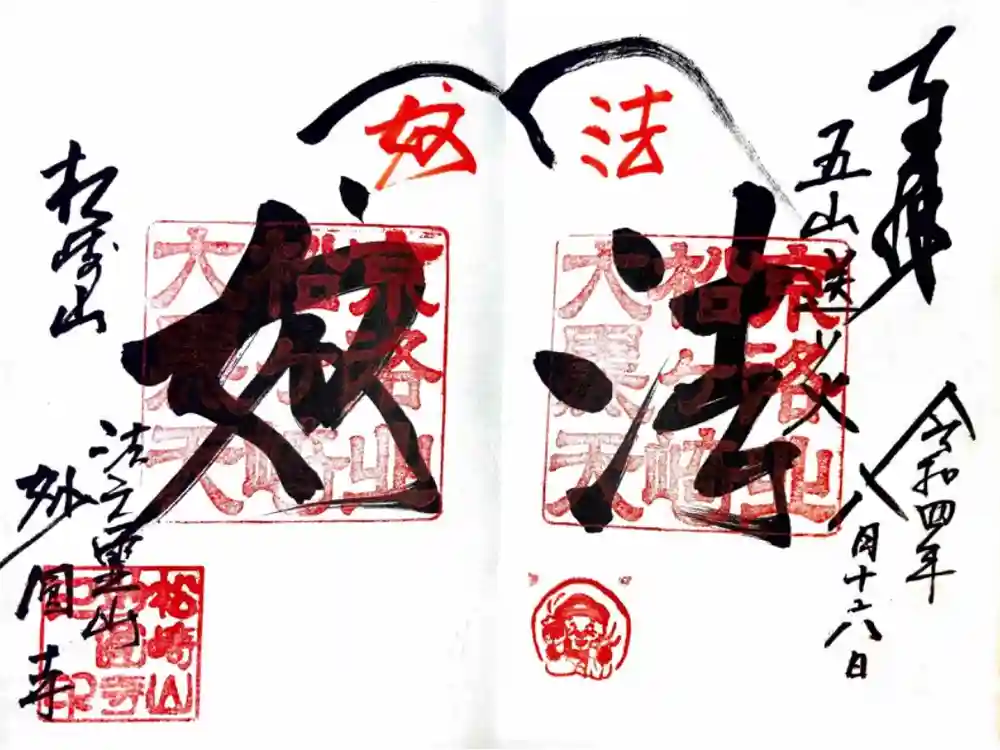 奉拝
五山送り火
令和四年
八月十六日
法
妙
法
妙
京洛
松ヶ崎
大黒天
京洛
松ヶ崎
大黒天
松崎山
妙圓寺
松崎山
妙圓寺